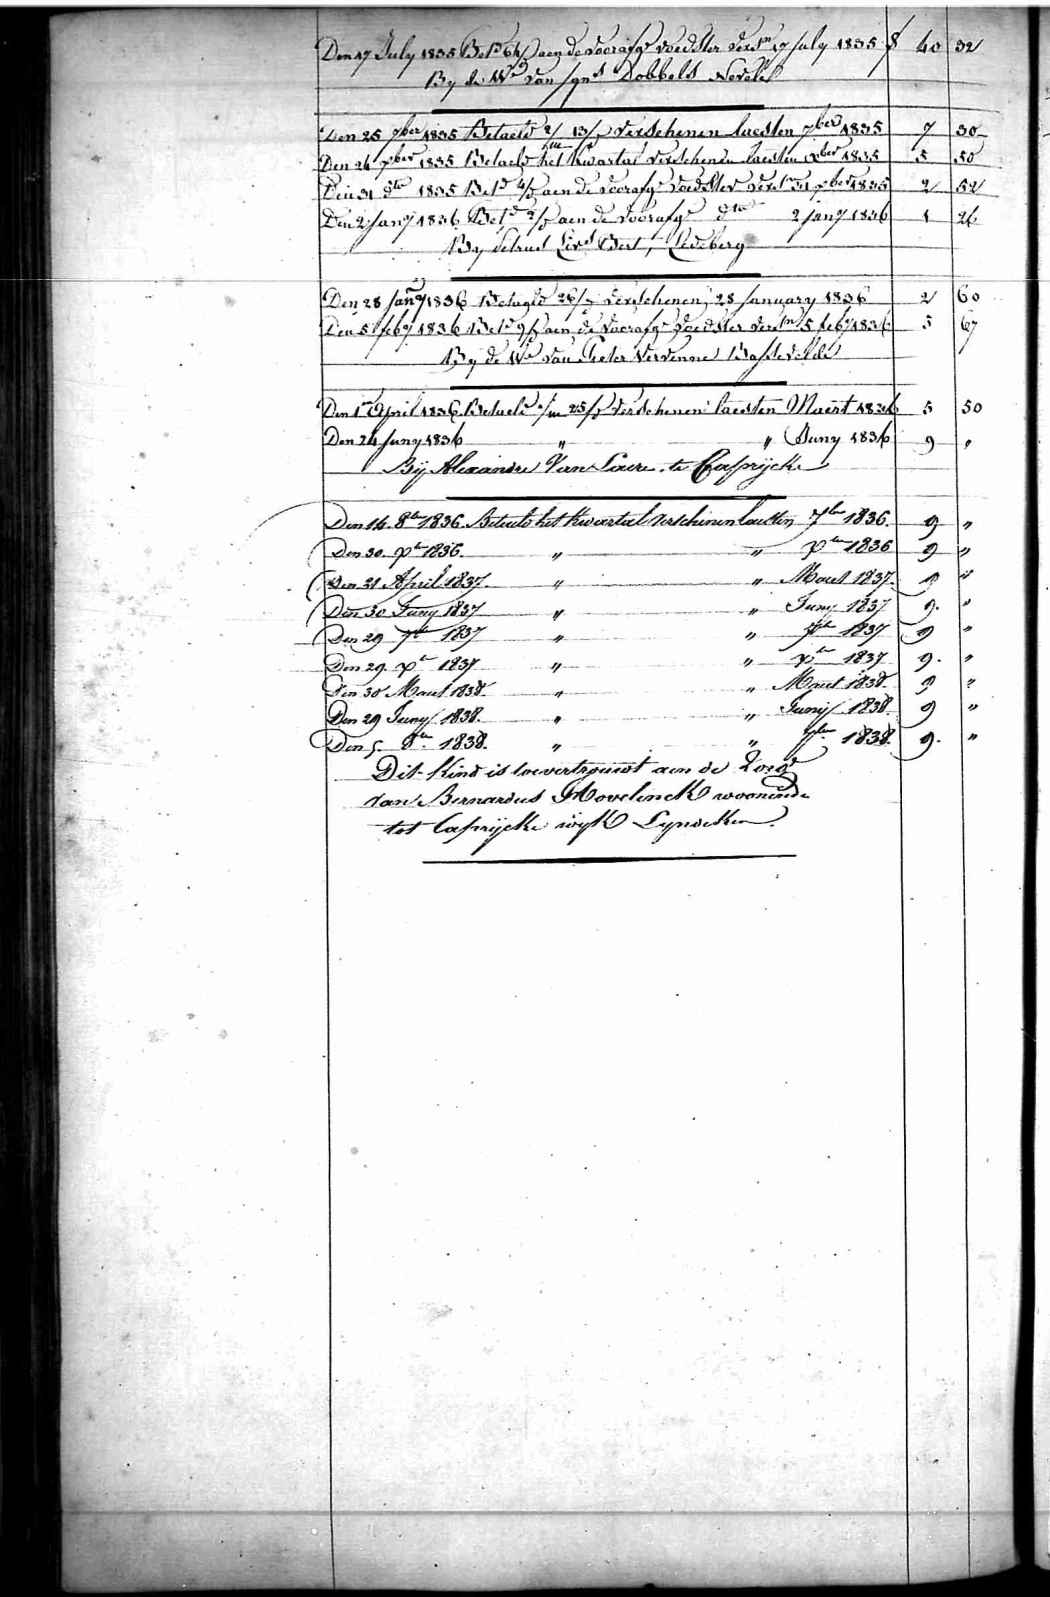 Den 17 July 1835 Bet.d 64/ aen de voorafg.e voedster versn 17 July 1835 f 40 32
By de We van Dobbels Nevele
Den 25 7ber 1835 Betaeld 2/ 13/ verschenen laesten 7ber 1835 7 30
Den 24 xber 1835 Betaeld het kwartael verschenen laesten xber 1835 5 50
Den 31 dto 1835 Bet.d 4/ aen de voorafg.e voedster versn 31 xber 1835 2 52
Den 2 Jany 1836 Bet.d 2/ aen de voorafg.e dto 2 Jany 1836 1 26
By Ledeberg
Den 28 Jany 1836 Betaeld 26/ verschenen 28 January 1836 2 60
Den 5 feby 1836 Bet.d 9/ aen de voorafg.e voedster versn 5 feby 1836 5 67
By de We van Pieter Vervenne Bassevelde
Den 1en April 1836 Betaeld 25/ verschenen laesten Maert 1836 5 50
Den 24 Juny 1836 " " Juny 1836 9 "
Bij Alexandre Van Laere te Caprijcke
Den 14 8ber 1836 Betaeld het kwartael verschenen laetsten 7ber 1836. 9 "
Den 30 xber 1836. " " xber 1836 9 "
Den 21 April 1837. " " Maert 1837. 9 "
Den 30 Juny 1837 " " Juny 1837 9. "
Den 29 7ber 1837 " " 7ber 1837 9 "
Den 29 xber 1837 " " xber 1837 9. "
Den 30 Maert 1838 " " Maert 1838. 9 "
Den 29 Juny 1838. " " Junij 1838. 9 "
Den 5 8ber 1838. " " 7ber 1838. 9. "
Dit kind is toevertrouwt aen de zorg
van Bernardus Hovelinck woonende
tot Caprijcke wijk Lyndeken.